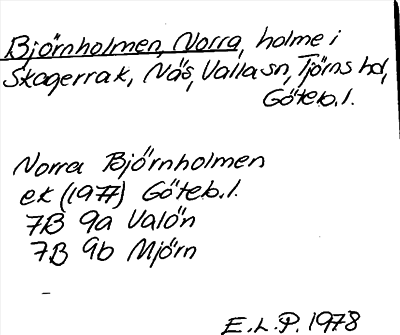 Björnholmen, Norra, holme i
Skagerrak, Näs, Valla sn, Tjörns hd,
Göteb. l.
Norra Björnholmen
ek (1977) Göteb. l.
7B 9a Valön
7B 9b Mjörn
E.L.P. 1978